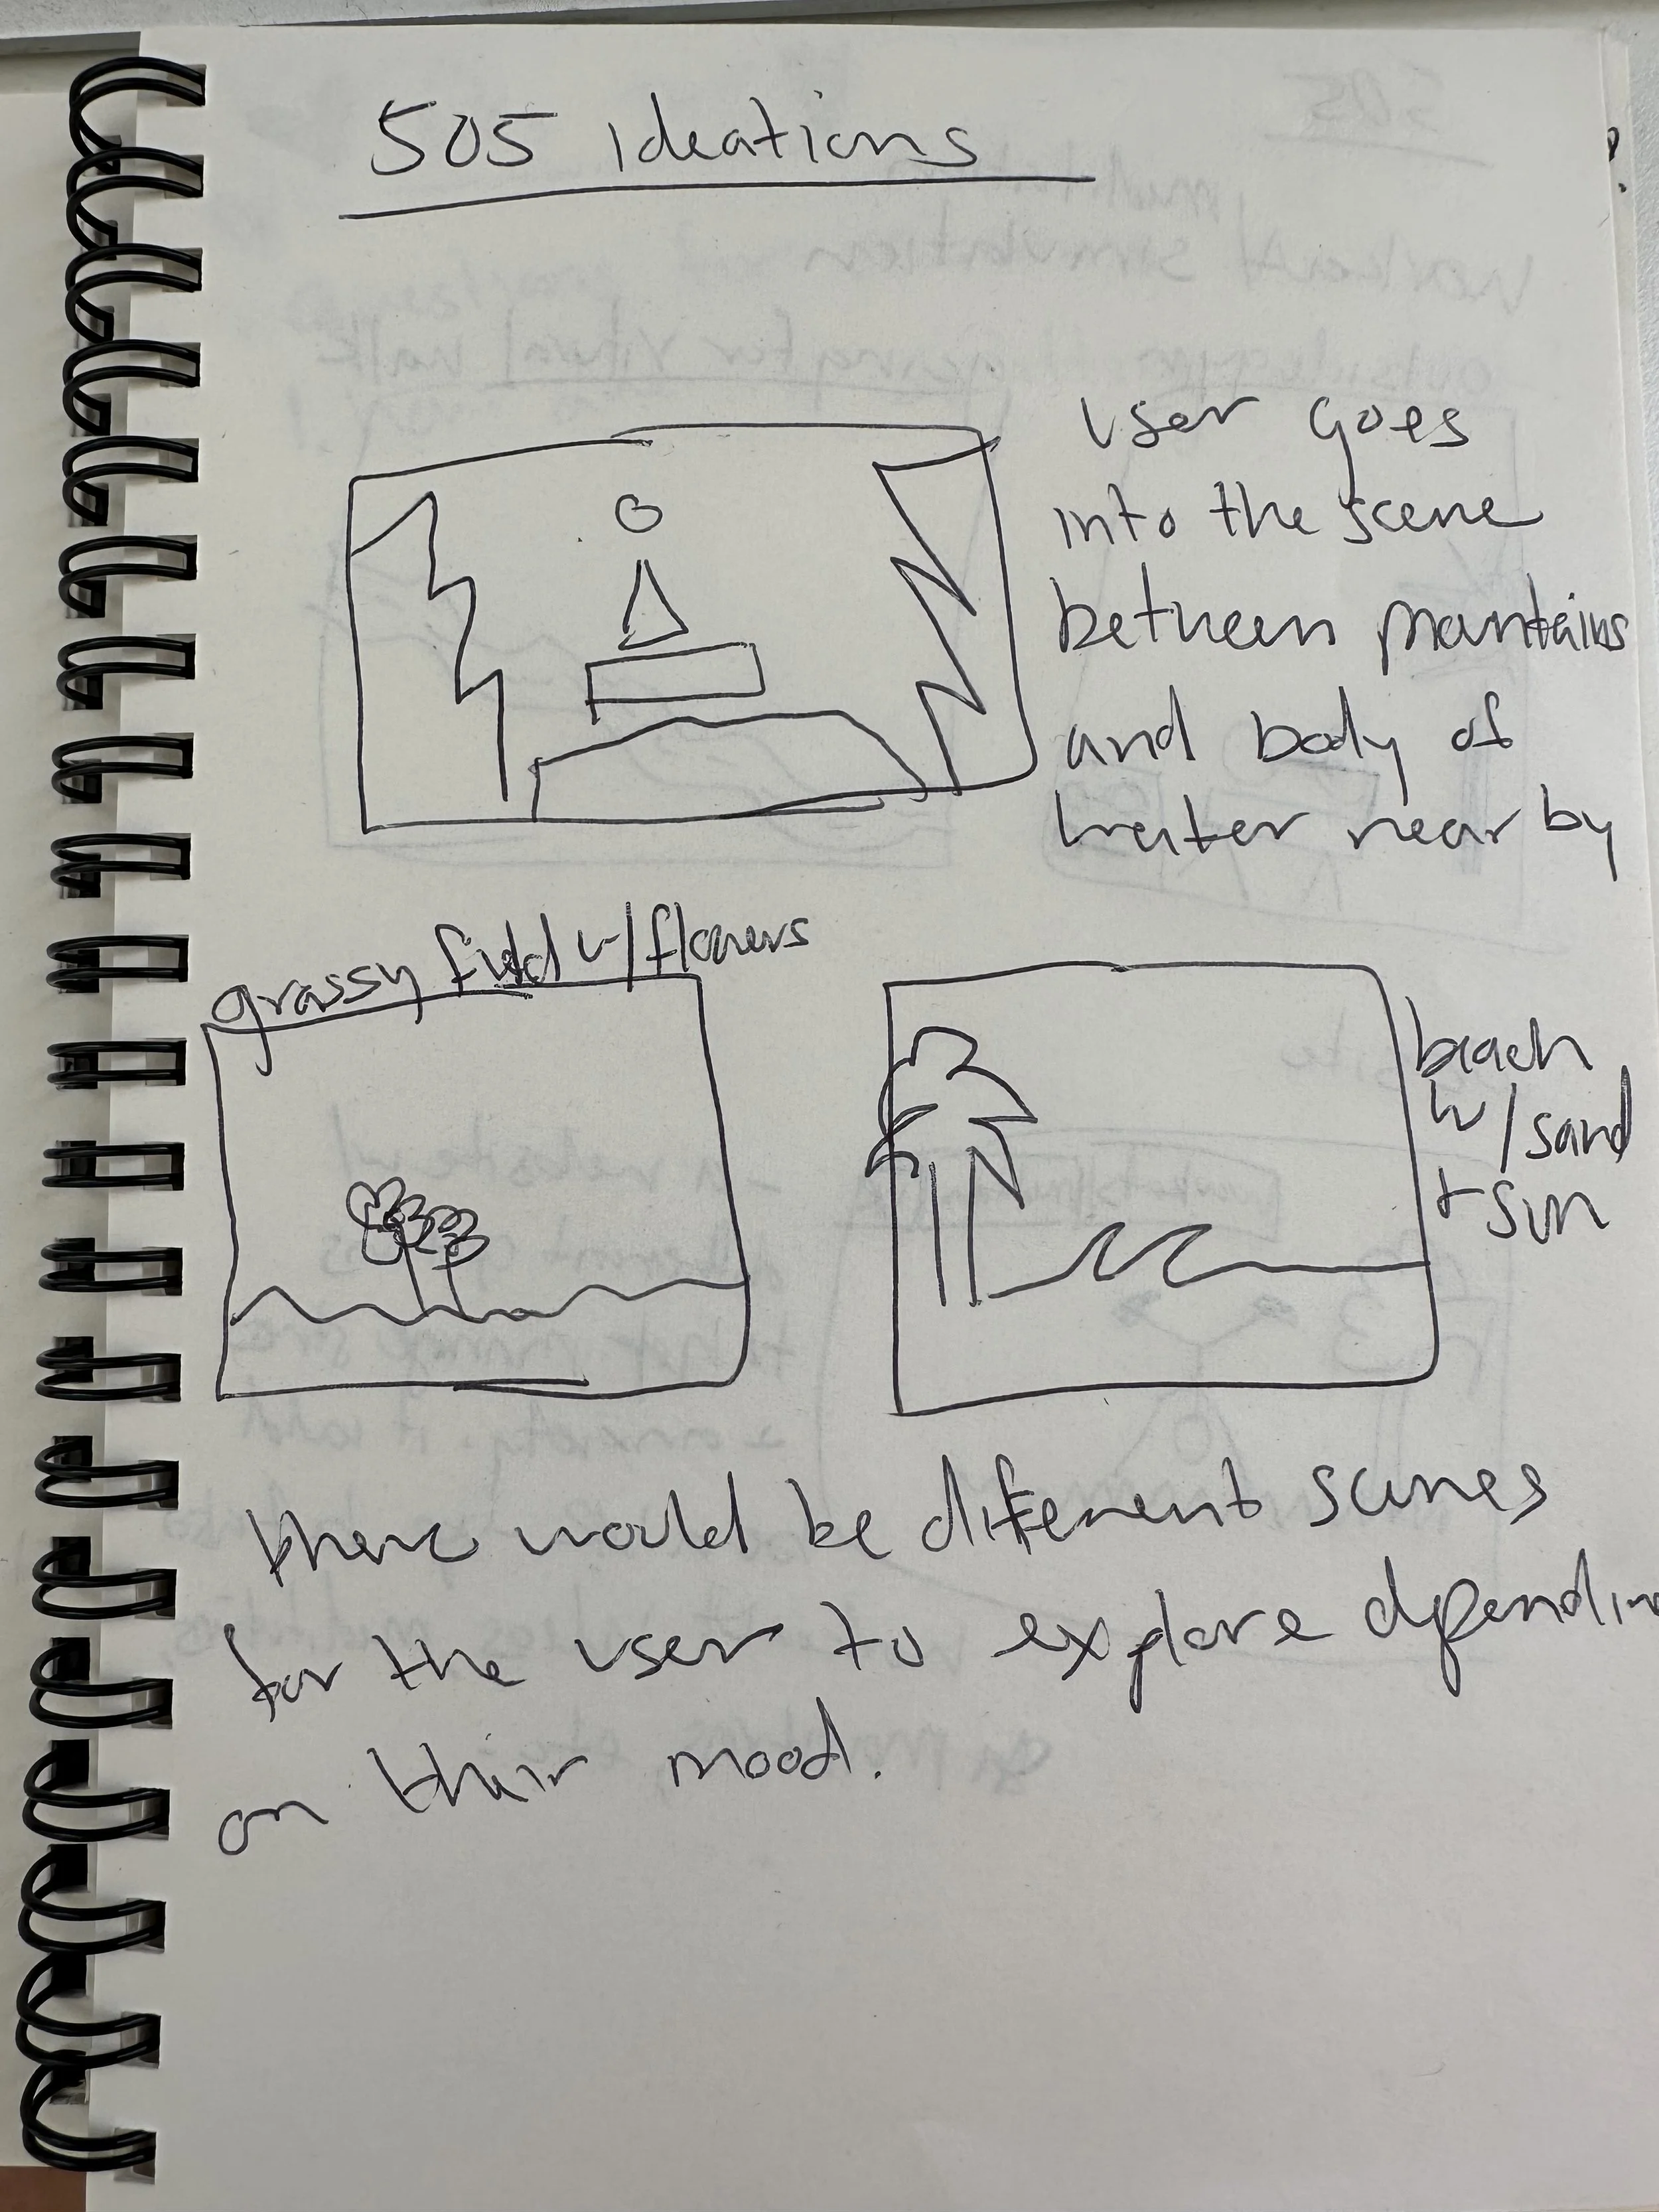 505 Ideations
User goes
into the scene
between mantains
and body of
water near by
grassy field w/flowers
beach
w/sand
+ sun
there would be different scenes
for the user to explore dpendin
on their mood.